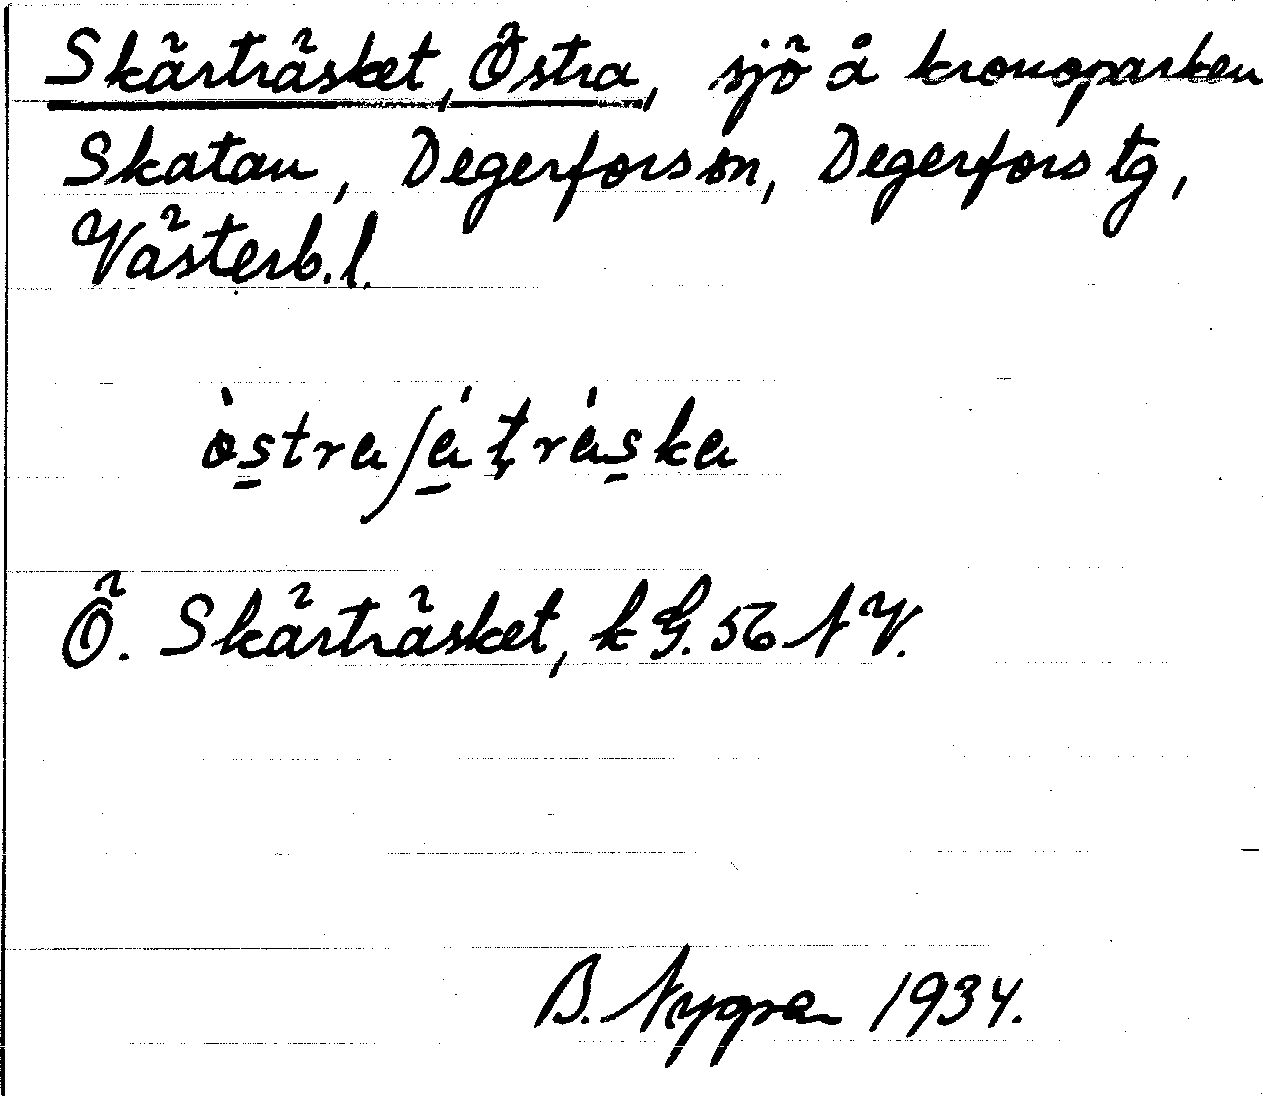 Skärträsket, Östra, sjö å kronoparken
Skatan, Degerfors sn, Degerfors tg,
Västerb. l.
òstra ʃá̱ ţrás̱ka
Ö. Skärträsket, k G. 56 NV.
B. Nygren 1934.